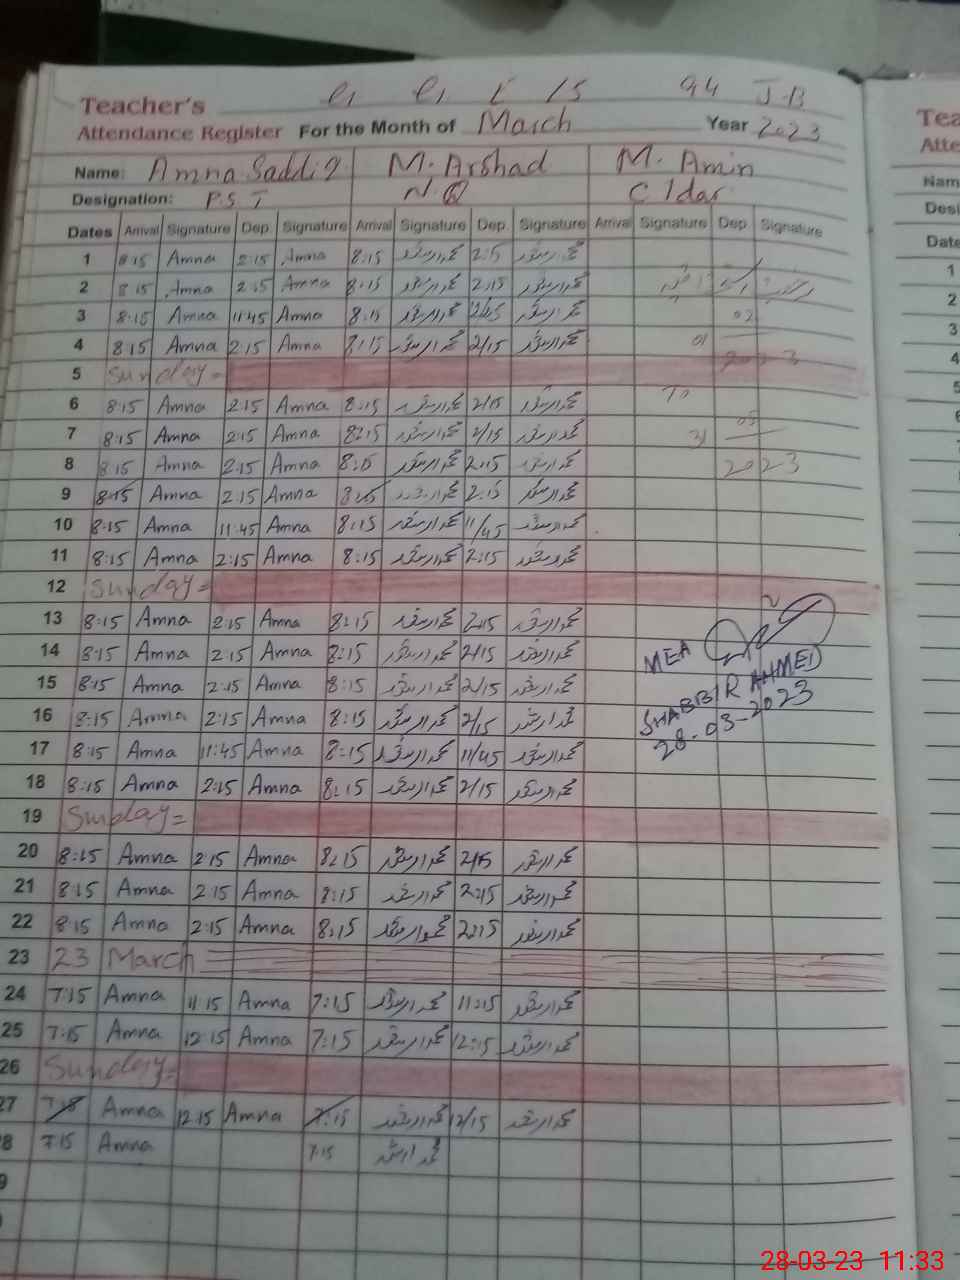 Teacher's 94 J-B
Attendance Register For the Month of March Year 2023
Name: Amna Saddiq M. Arshad M. Amin
Designation: P.S.T N.Q
Dates Arrival Signature Dep. Signature Arrival Signature Dep. Signature Arrival Signature Dep Signature
1 8:15 Amna 2:15 Amna 8:15 محمد ارشد 2:15 محمد ارشد
2 8:15 Amna 2:15 Amna 8:15 محمد ارشد 2:15 محمد ارشد
3 8:15 Amna 11:45 Amna 8:15 محمد ارشد محمد ارشد 02
4 8:15 Amna 2:15 Amna 8:15 محمد ارشد 2/15 محمد ارشد 01
5 Sunday= 2023
6 8:15 Amna 2:15 Amna 8:15 محمد ارشد 2/15 محمد ارشد To
7 8:15 Amna 2:15 Amna 8:15 محمد ارشد 2/15 محمد ارشد 31 05
8 8:15 Amna 2:15 Amna 8:15 محمد ارشد 2:15 محمد ارشد 2023
9 8:15 Amna 2:15 Amna 8:15 محمد ارشد 2:15 محمد ارشد
10 8:15 Amna 11:45 Amna 8:15 محمد ارشد 11/45 محمد ارشد
11 8:15 Amna 2:15 Amna 8:15 محمد ارشد 2:15 محمد ارشد
12 Sunday=
13 8:15 Amna 2:15 Amna 8:15 محمد ارشد 2:15 محمد ارشد
14 8:15 Amna 2:15 Amna 8:15 محمد ارشد 2/15 محمد ارشد MEA
15 8:15 Amna 2:15 Amna 8:15 محمد ارشد 2/15 محمد ارشد SHABBIR AHMED
16 8:15 Amna 2:15 Amna 8:15 محمد ارشد 2/15 محمد ارشد 28-03-2023
17 8:15 Amna 11:45 Amna 8:15 محمد ارشد 11/45 محمد ارشد
18 8:15 Amna 2:15 Amna 8:15 محمد ارشد 2/15 محمد ارشد
19 Sunday=
20 8:15 Amna 2:15 Amna 8:15 محمد ارشد 2/15 محمد ارشد
21 8:15 Amna 2:15 Amna 8:15 محمد ارشد 2:15 محمد ارشد
22 8:15 Amna 2:15 Amna 8:15 محمد ارشد 2:15 محمد ارشد
23 23 March
24 7:15 Amna 11:15 Amna 7:15 محمد ارشد 11:15 محمد ارشد
25 7:15 Amna 12:15 Amna 7:15 محمد ارشد 12:15 محمد ارشد
26 Sunday=
27 7:15 Amna 12:15 Amna 7:15 محمد ارشد 12/15 محمد ارشد
8 7:15 Amna 7:15 محمد ارشد
9
Tea
Atte
Nam
Desi
Date
1
2
3
4
5
28-03-23 11:33